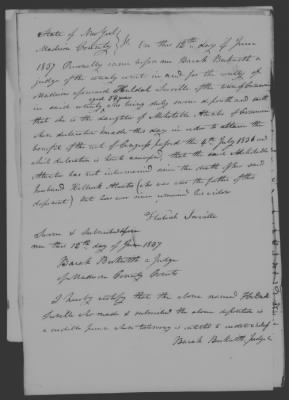 State of New York
Madison County } ss. On this 12th day of June
1837 Personally came before me Barak Beckwith a
judge of the county court in and for the county of
Madison aforesaid Huldah Saville of the town of
aged 58 years
in said county who being duly sworn deposeth and saith
that she is the daughter of Mehitable Alvord of
whose declaration made this day in order to obtain the
benefit of the act of Congress passed the 4th July 1836 and
which declaration is hereto annexed, that the said Mehitable
has not intermarried since the death of her said
husband (who was also the father of this
deponent) but has ever since remained his widow
Huldah Saville
Sworn & subscribed before
me this 12th day of June 1837
Barak Beckwith a Judge
of Madison County Courts
I hereby certify that the above named Huldah
Saville who made & subscribed the above deposition is
a credible person whose testimony is entitled to credit & belief
Barak Beckwith Judge &c